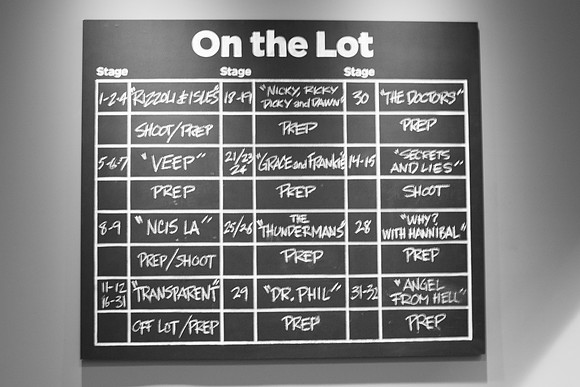 On the Lot
Stage Stage Stage
1-2-4 "RIZZOLI & ISLES" 18-19 "NICKY, RICKY DICKY and DAWN" 30 "THE DOCTORS"
SHOOT/PREP PREP PREP
5-6-7 "VEEP" 21/23 24 "GRACE and FRANKIE" 14-15 "SECRETS AND LIES"
PREP PREP SHOOT
8-9 "NCIS LA" 25/26 "THE THUNDERMANS" 28 "WHY? WITH HANNIBAL"
PREP/SHOOT PREP PREP
11-12 16-31 "TRANSPARENT" 29 "DR. PHIL" 31-32 "ANGEL FROM HELL"
OFF LOT/PREP PREP PREP